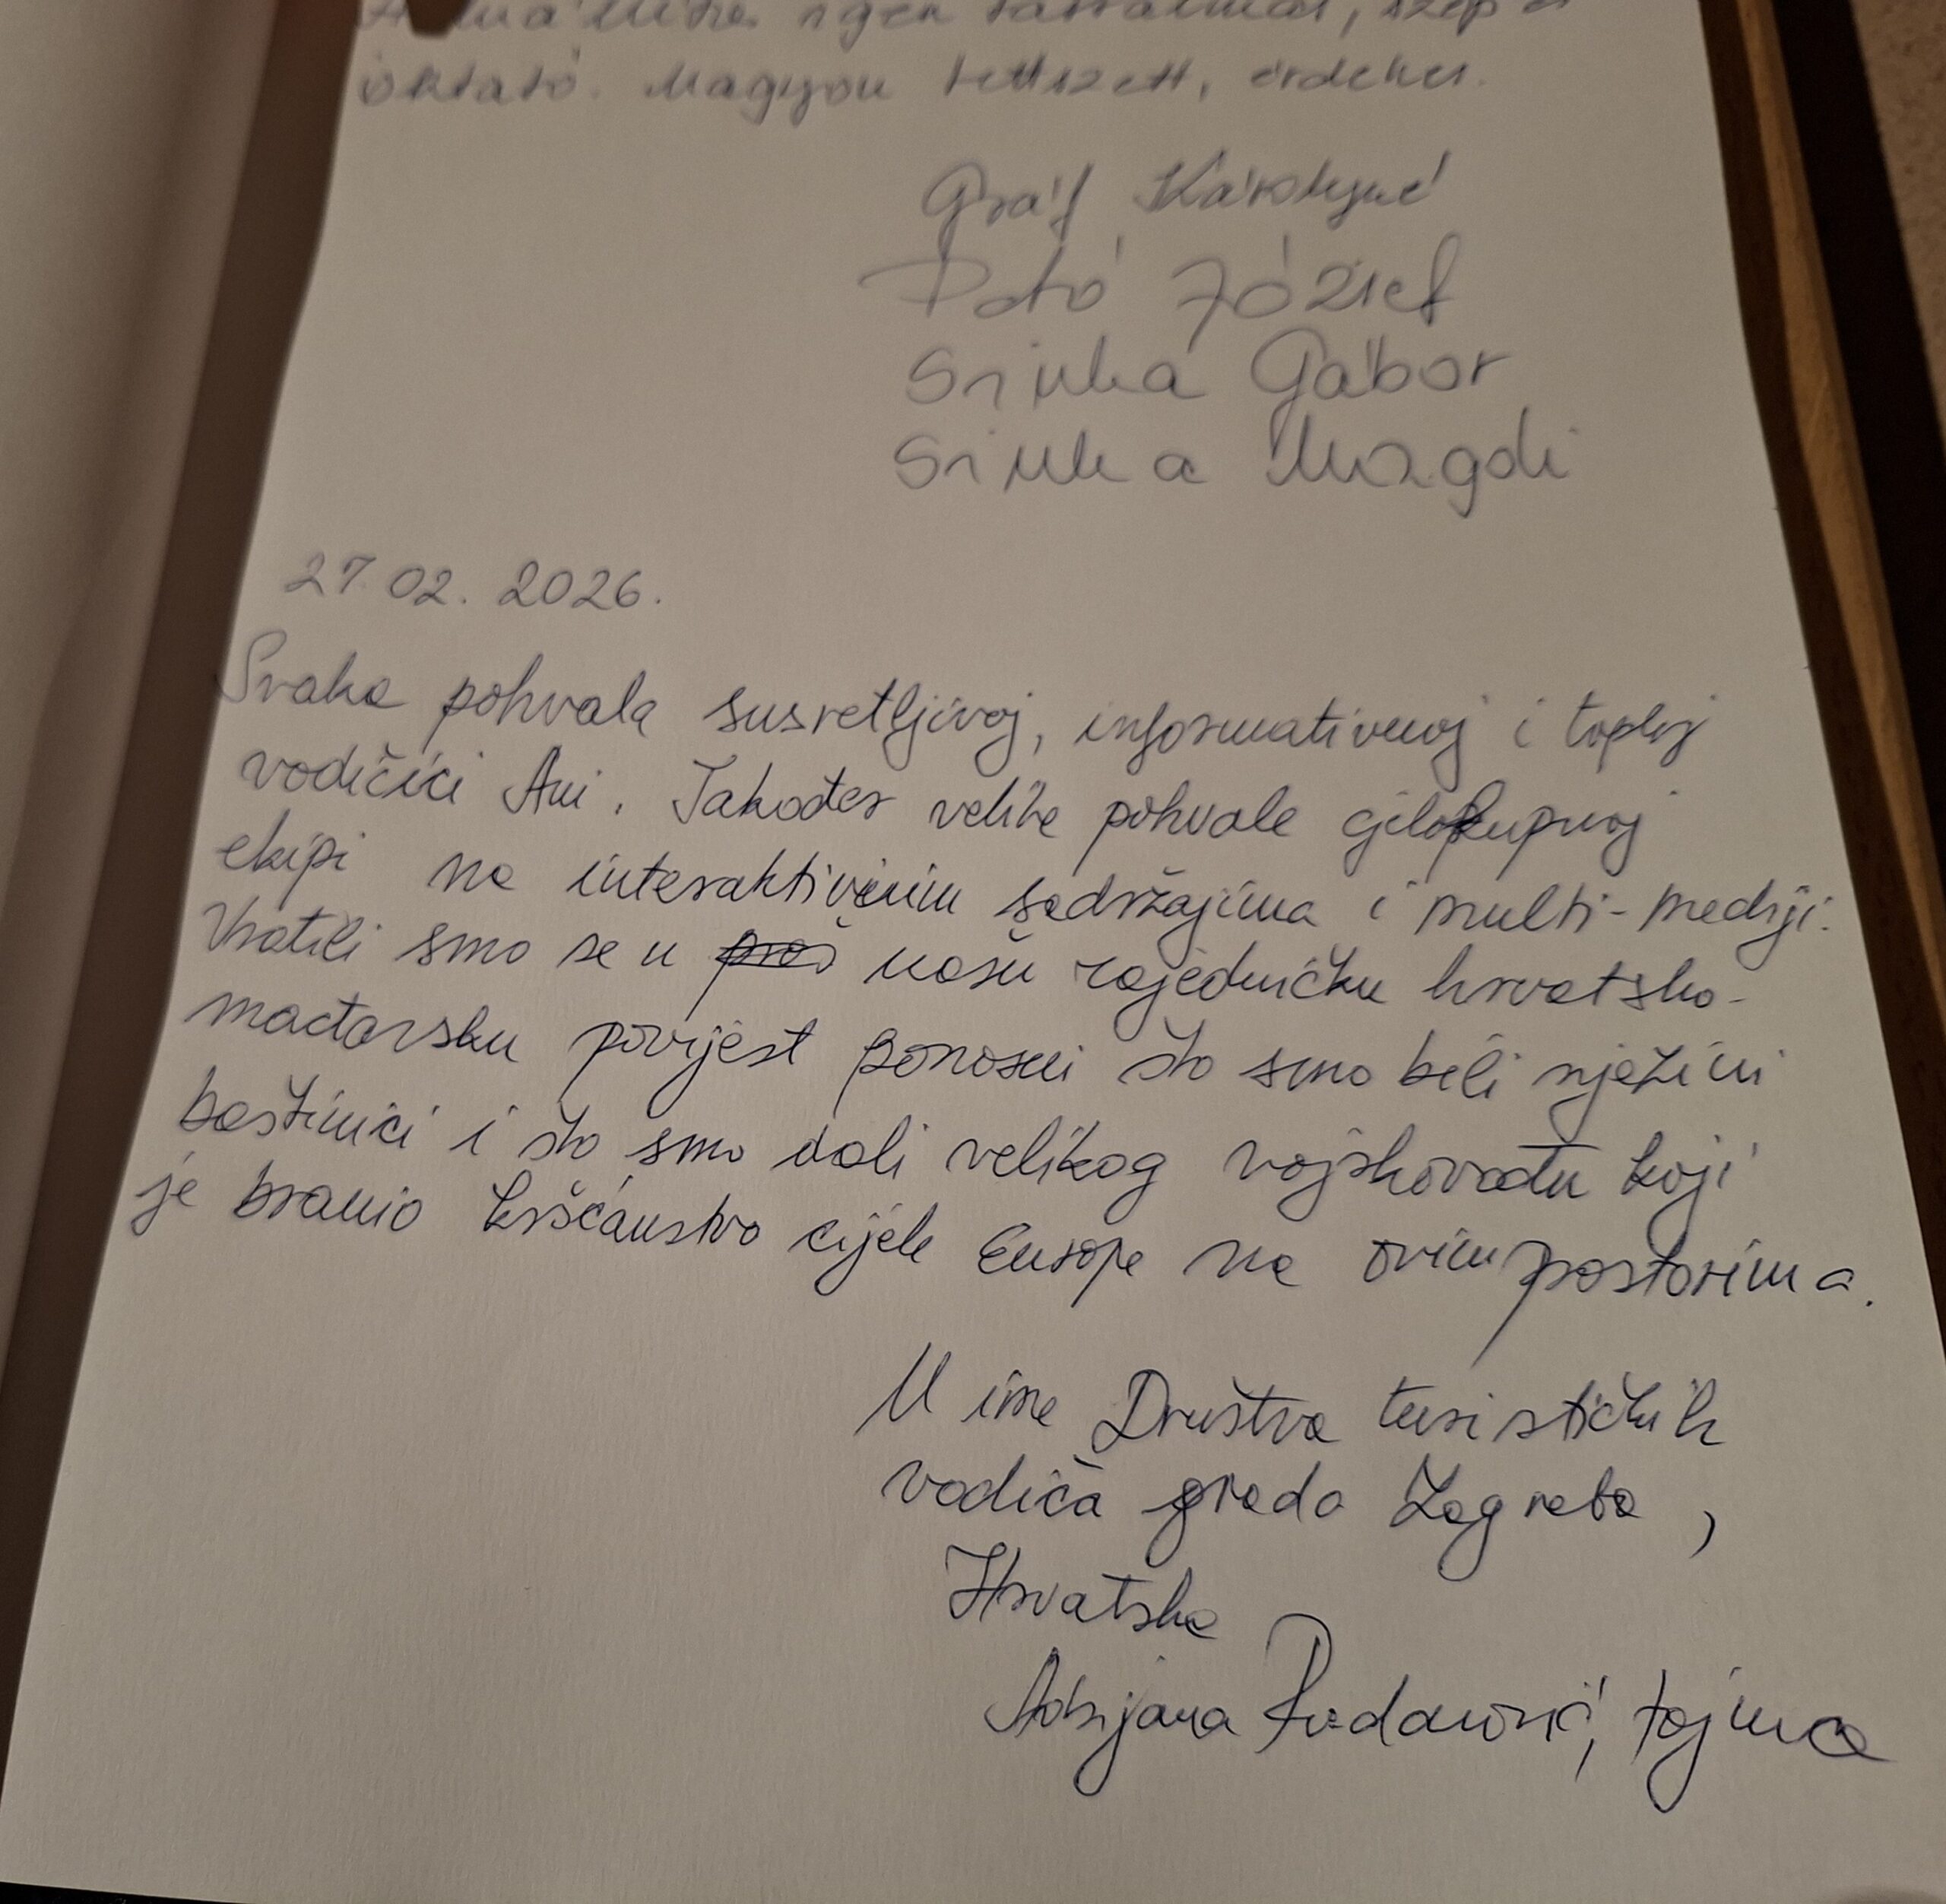 igen tartalmas, szép és
oktató. Nagyon tettszett, érdekes.
Gráf Károlyné
Pető József
Srinka Gábor
Srinka Magdi
27.02.2026.
Svaka pohvala susretljivoj, informativnoj i toploj
vodičici Ani. Također velike pohvale cjelokupnoj
ekipi na interaktivnim sadržajima i multi-mediji.
Vratili smo se u našu zajedničku hrvatsko-
mađarsku povijest ponosni što smo bili njezini
baštinici i što smo dali velikog vojskovođu koji
je branio kršćanstvo cijele Europe na ovim postorima.
U ime Društva turističkih
vodiča grada Zagreba,
Hrvatska
Adrijana Rudanović, tajnica